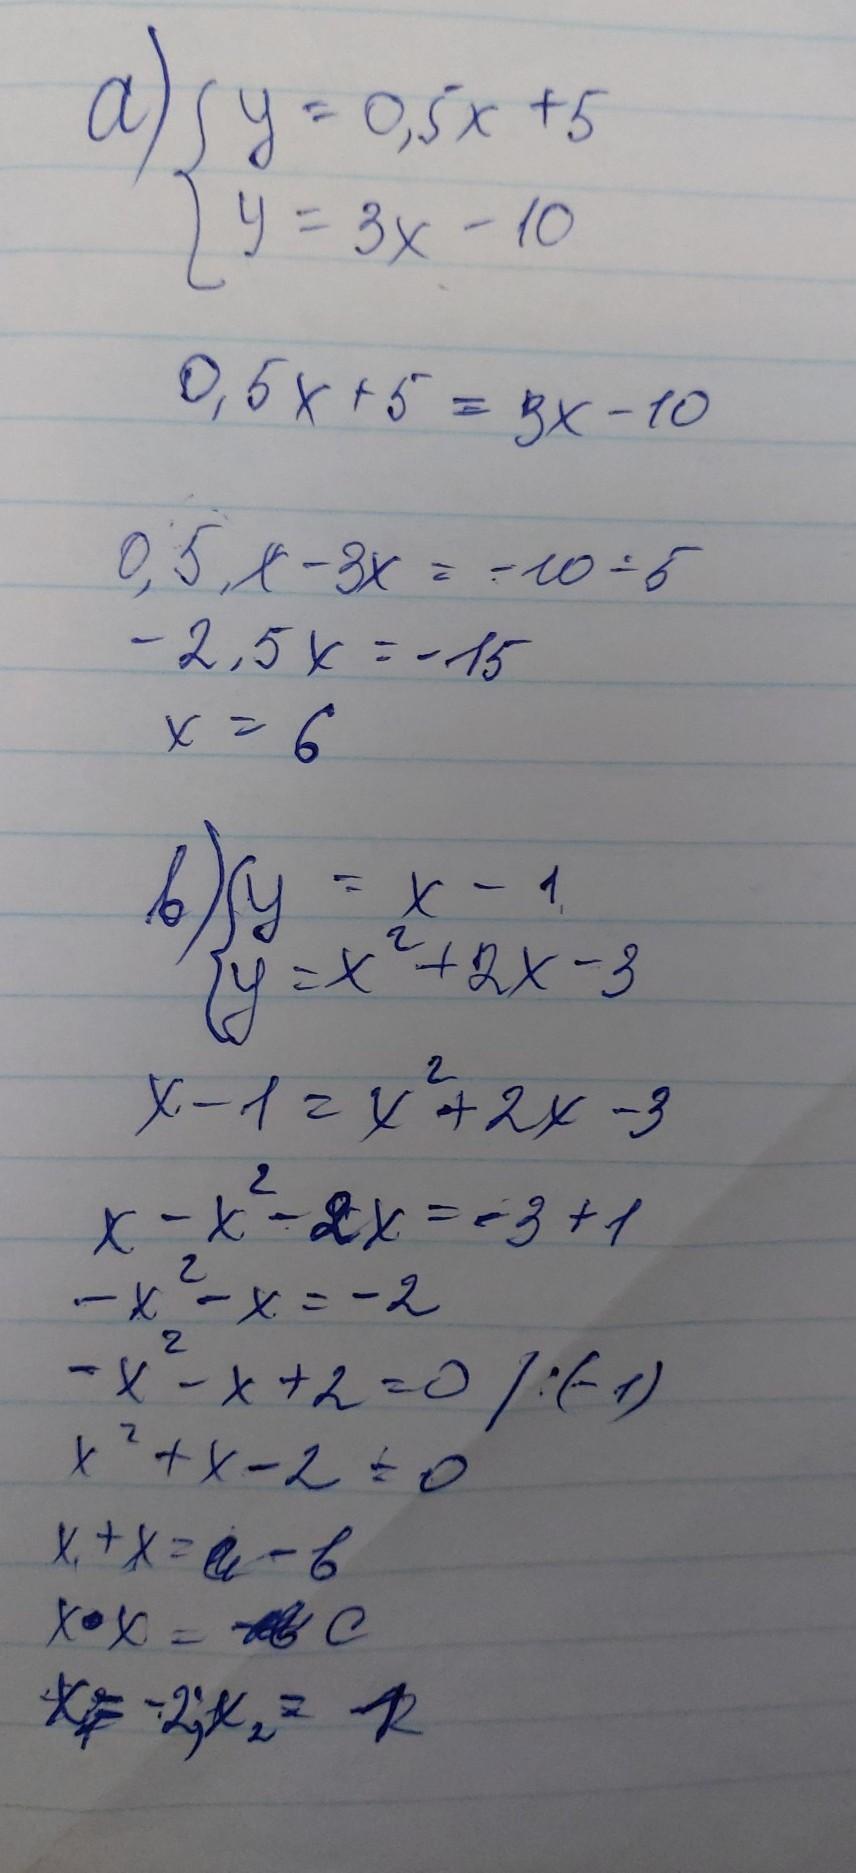 a) { y = 0,5x + 5
y = 3x - 10
0,5x + 5 = 3x - 10
0,5x - 3x = -10 - 5
-2,5x = -15
x = 6
b) { y = x - 1
y = x² + 2x - 3
x - 1 = x² + 2x - 3
x - x² - 2x = -3 + 1
-x² - x = -2
-x² - x + 2 = 0 / :(-1)
x² + x - 2 = 0
x + x = - b
x • x = c
x₁ = -2; x₂ =